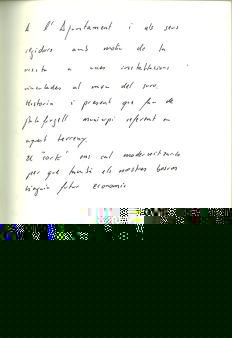 A l'Ajuntament i als seus
regidors amb motiu de la
visita a unes instal·lacions
vinculades al món del suro.
Història i present que fan de
Palafrugell municipi referent en
aquest terreny.
El "corti" ens cal modernitzar-lo
per que també els nostres boscos
tinguin futur econòmic